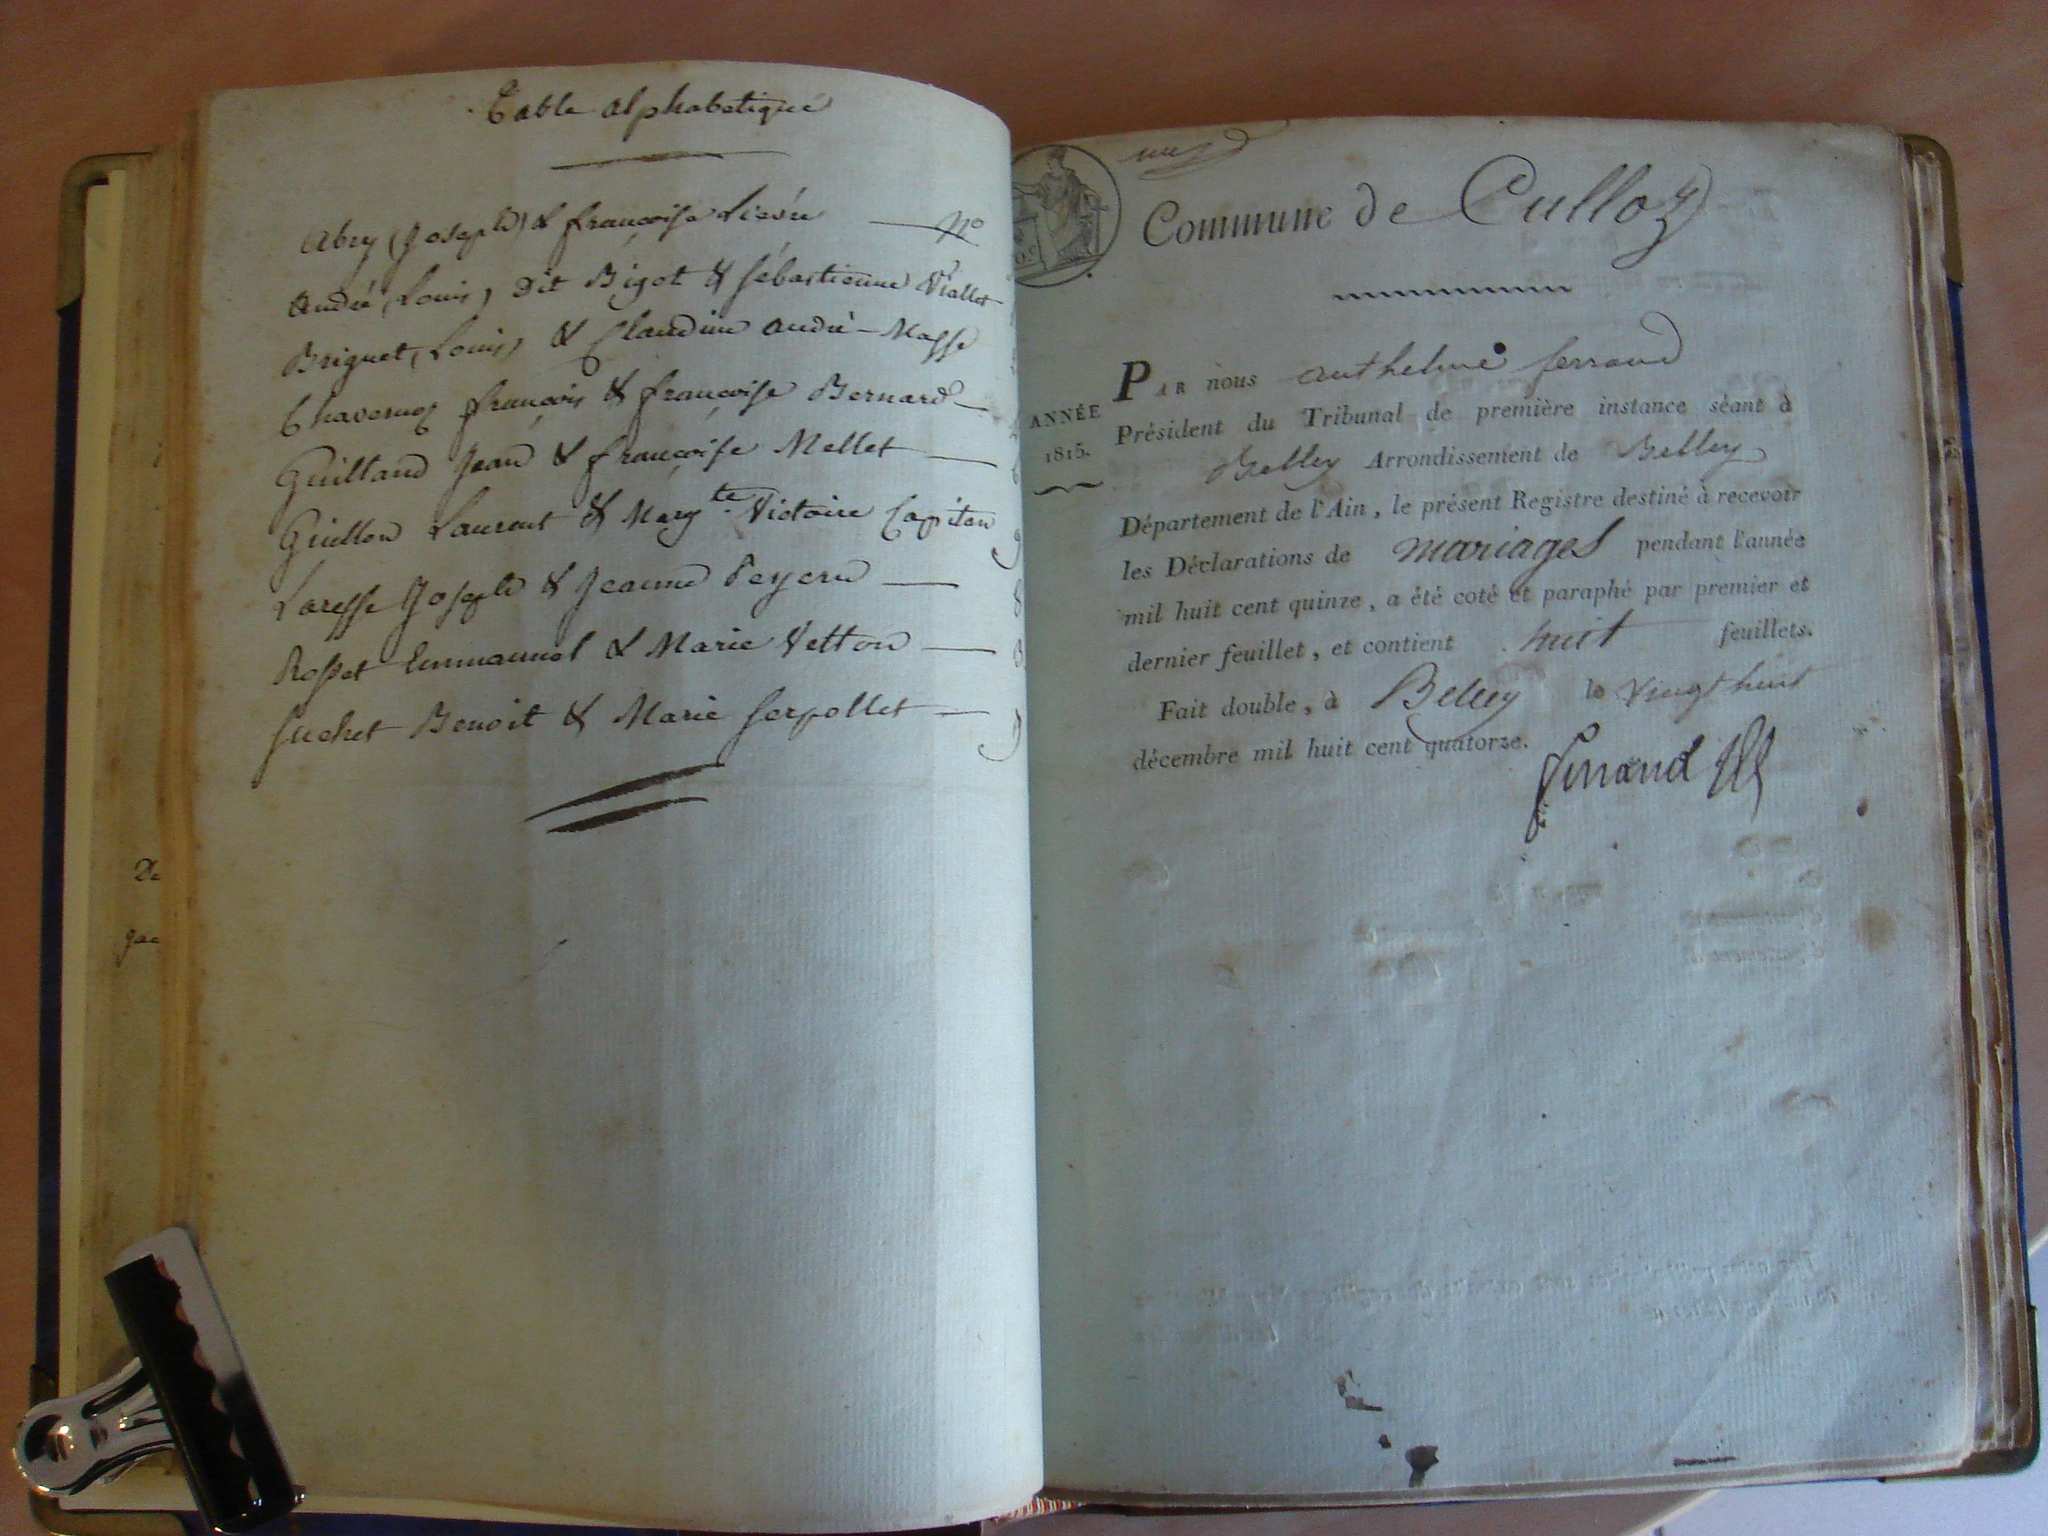 Table alphabetique
Abry (Joseph) & françoise Lievre — No
André, Louis, dit Bigot & Sébastienne Viallet
Briguet, Louis, & Claudine André-Masse
Chavernoz françois & françoise Bernard —
Guilland Jean & françoise Mellet —
Guillon Laurent & Margte Victoire Capitan 9
Laresse Joseph & Jeanne Peyern — 8
Rosset Emmanuel & Marie Vetton —
Suchet Benoit & Marie Serpollet —
De
Commune de Culloz
ANNÉE
1815.
PAR nous anthelme ferrand
Président du Tribunal de première instance séant à
Belley Arrondissement de Belley
Département de l'Ain, le présent Registre destiné à recevoir
les Déclarations de mariages pendant l'année
mil huit cent quinze, a été coté et paraphé par premier et
dernier feuillet, et contient huit feuillets.
Fait double, à Belley le vingt huit
décembre mil huit cent quatorze.
ferrand